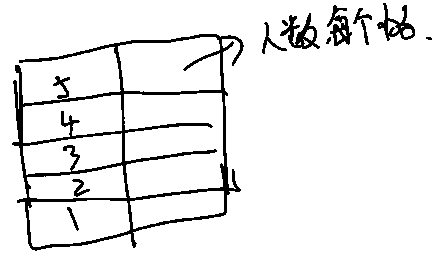 人数每个格.
5
4
3
2
1